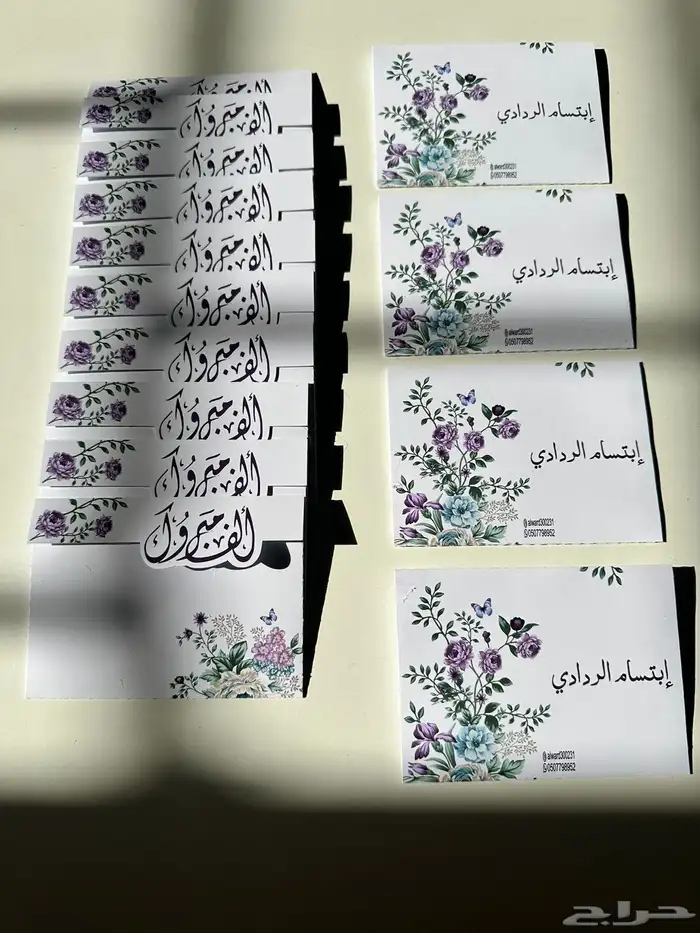 ألف مبروك
ألف مبروك
ألف مبروك
ألف مبروك
ألف مبروك
ألف مبروك
ألف مبروك
ألف مبروك
ألف مبروك
ألف مبروك
إبتسام الردادي
@alward300231
0507798952
إبتسام الردادي
@alward300231
0507798952
إبتسام الردادي
@alward300231
0507798952
إبتسام الردادي
@alward300231
0507798952
حراج